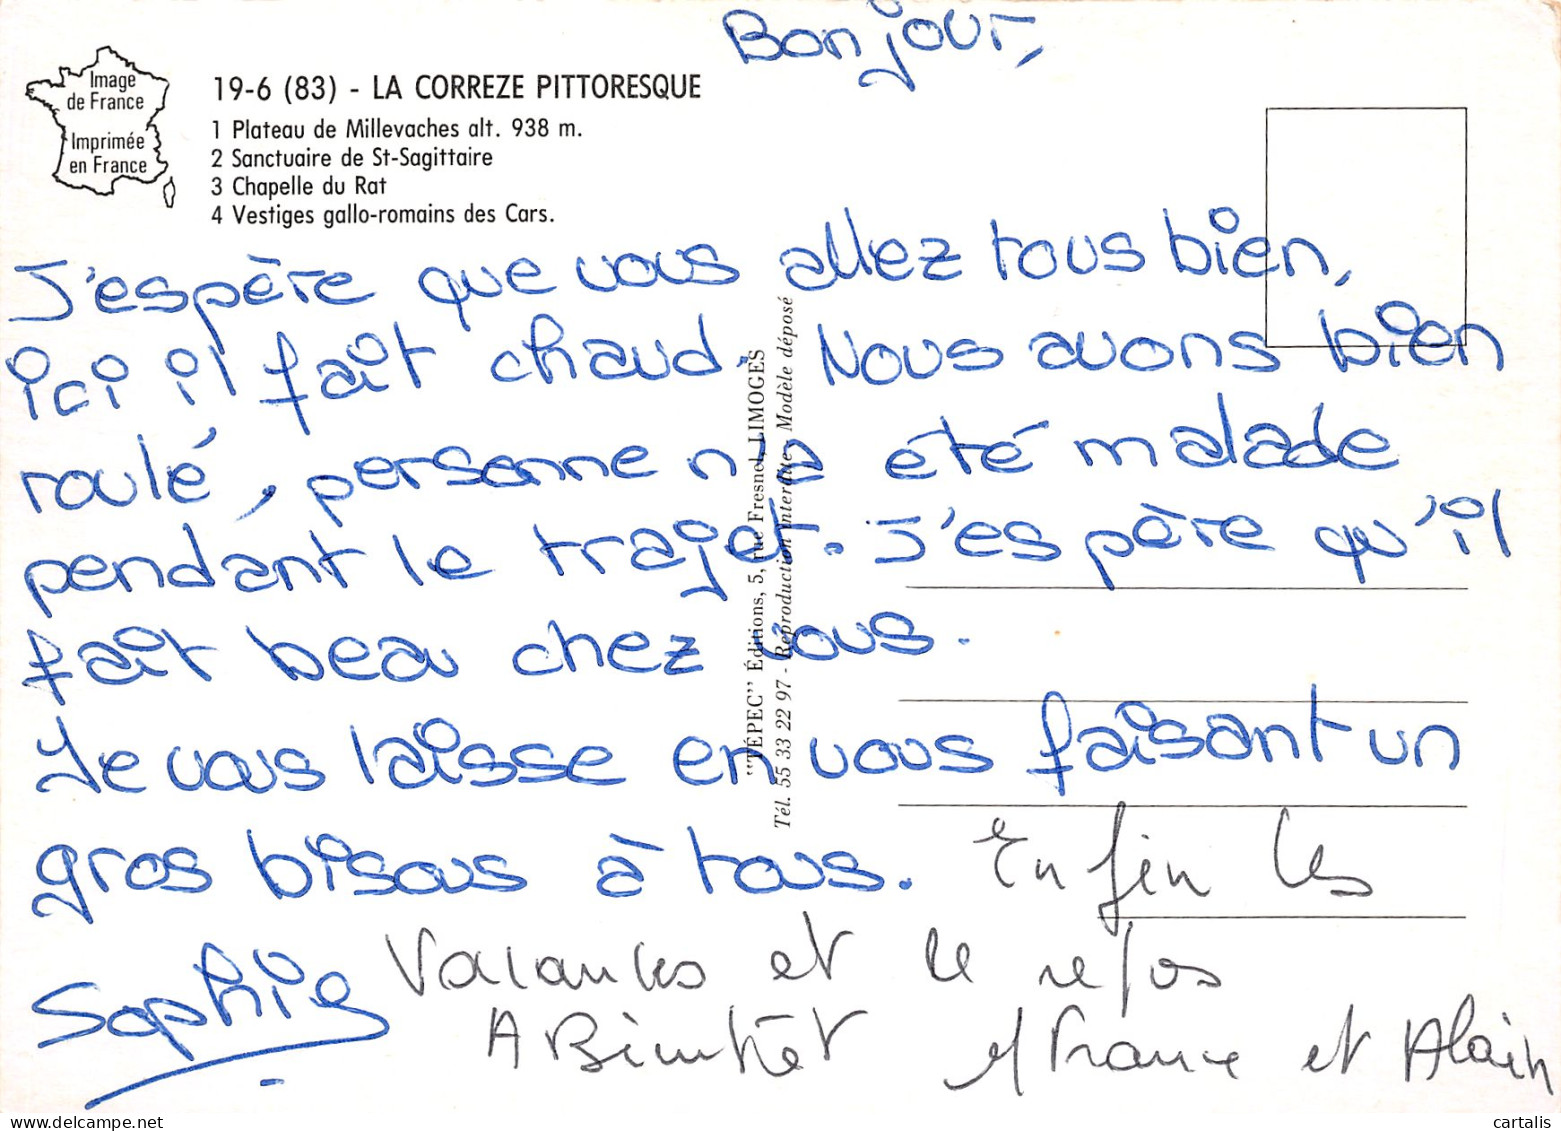 Bonjour,
Image
de France
Imprimée
en France
19-6 (83) - LA CORREZE PITTORESQUE
1 Plateau de Millevaches alt. 938 m.
2 Sanctuaire de St-Sagittaire
3 Chapelle du Rat
4 Vestiges gallo-romains des Cars.
J'espère que vous allez tous bien,
ici il fait chaud. Nous avons bien
roulé, personne n'a été malade
pendant le trajet. J'espère qu'il
fait beau chez vous.
Je vous laisse en vous faisant un
gros bisous à tous. Enfin les
Vacances et le repos
A Bientôt M France et Alain
Sophie
"TÉPEC" Éditions, 5, rue Fresnel, LIMOGES
Tél. 55 33 22 97 - Reproduction interdite - Modèle déposé
cartalis